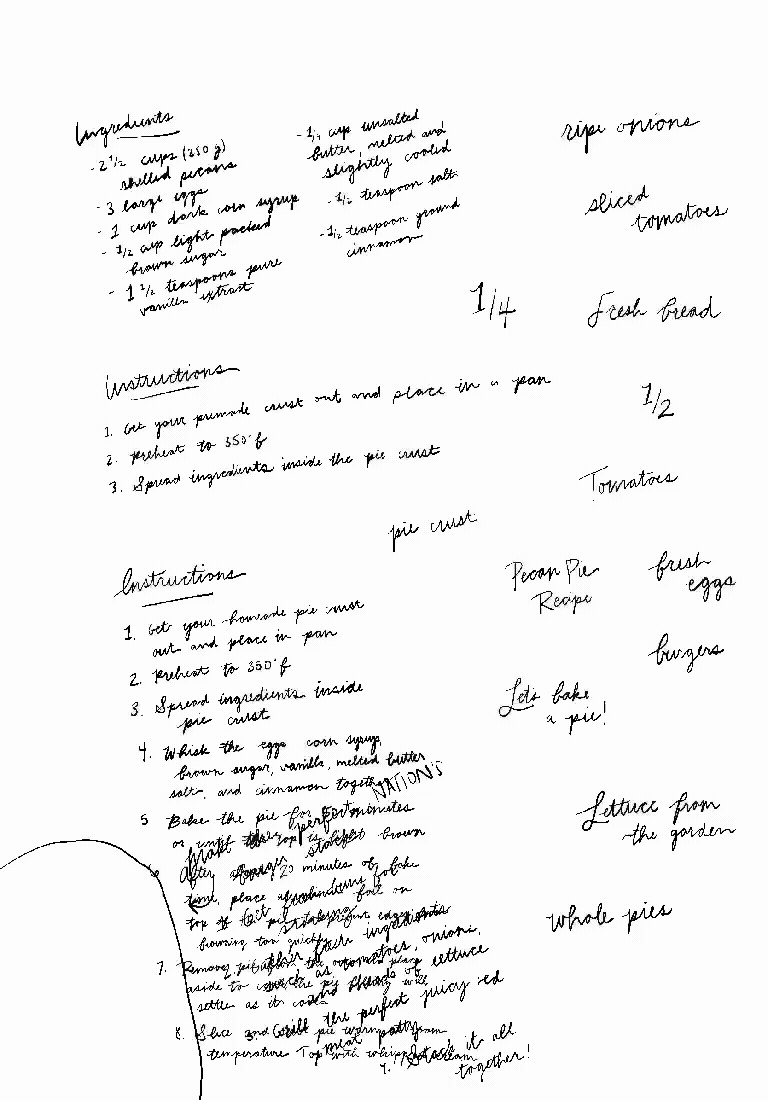 Ingredients
- 2 1/2 cups (250 g)
shelled pecans
- 3 large eggs
- 1 cup dark corn syrup
- 1/2 cup light packed
brown sugar
- 1 1/2 teaspoons pure
vanilla extract
- 1/4 cup unsalted
butter, melted and
slightly cooled
- 1/2 teaspoon salt
- 1/2 teaspoon ground
cinnamon
ripe onions
sliced
tomatoes
1/4
Fresh bread
Instructions
1. Get your premade crust out and place in a pan
2. Preheat to 350°f
3. Spread ingredients inside the pie crust
1/2
Tomatoes
pie crust
Instructions
1. Get your homade pie crust
out and place in pan
2. Preheat to 350°f
3. Spread ingredients inside
pie crust
4. Whisk the eggs corn syrup,
brown sugar, vanilla, melted butter
salt, and cinnamon together
NATIONS
5 Bake the pie for minutes
or until the top is brown
After 20 minutes of bake
time, place foil on
top of pie
browning too quickly
7. Remove pie
aside to
settle as it cools
such as tomatoes, onions,
lettuce
8. Slice and pie warm
temperature Top with whipped cream
3. Grill the perfect juicy
meat patty
4. Stack it all
together!
Pecan Pie
Recipe
fresh
eggs
burgers
Let's bake
a pie!
Lettuce from
the garden
whole pies